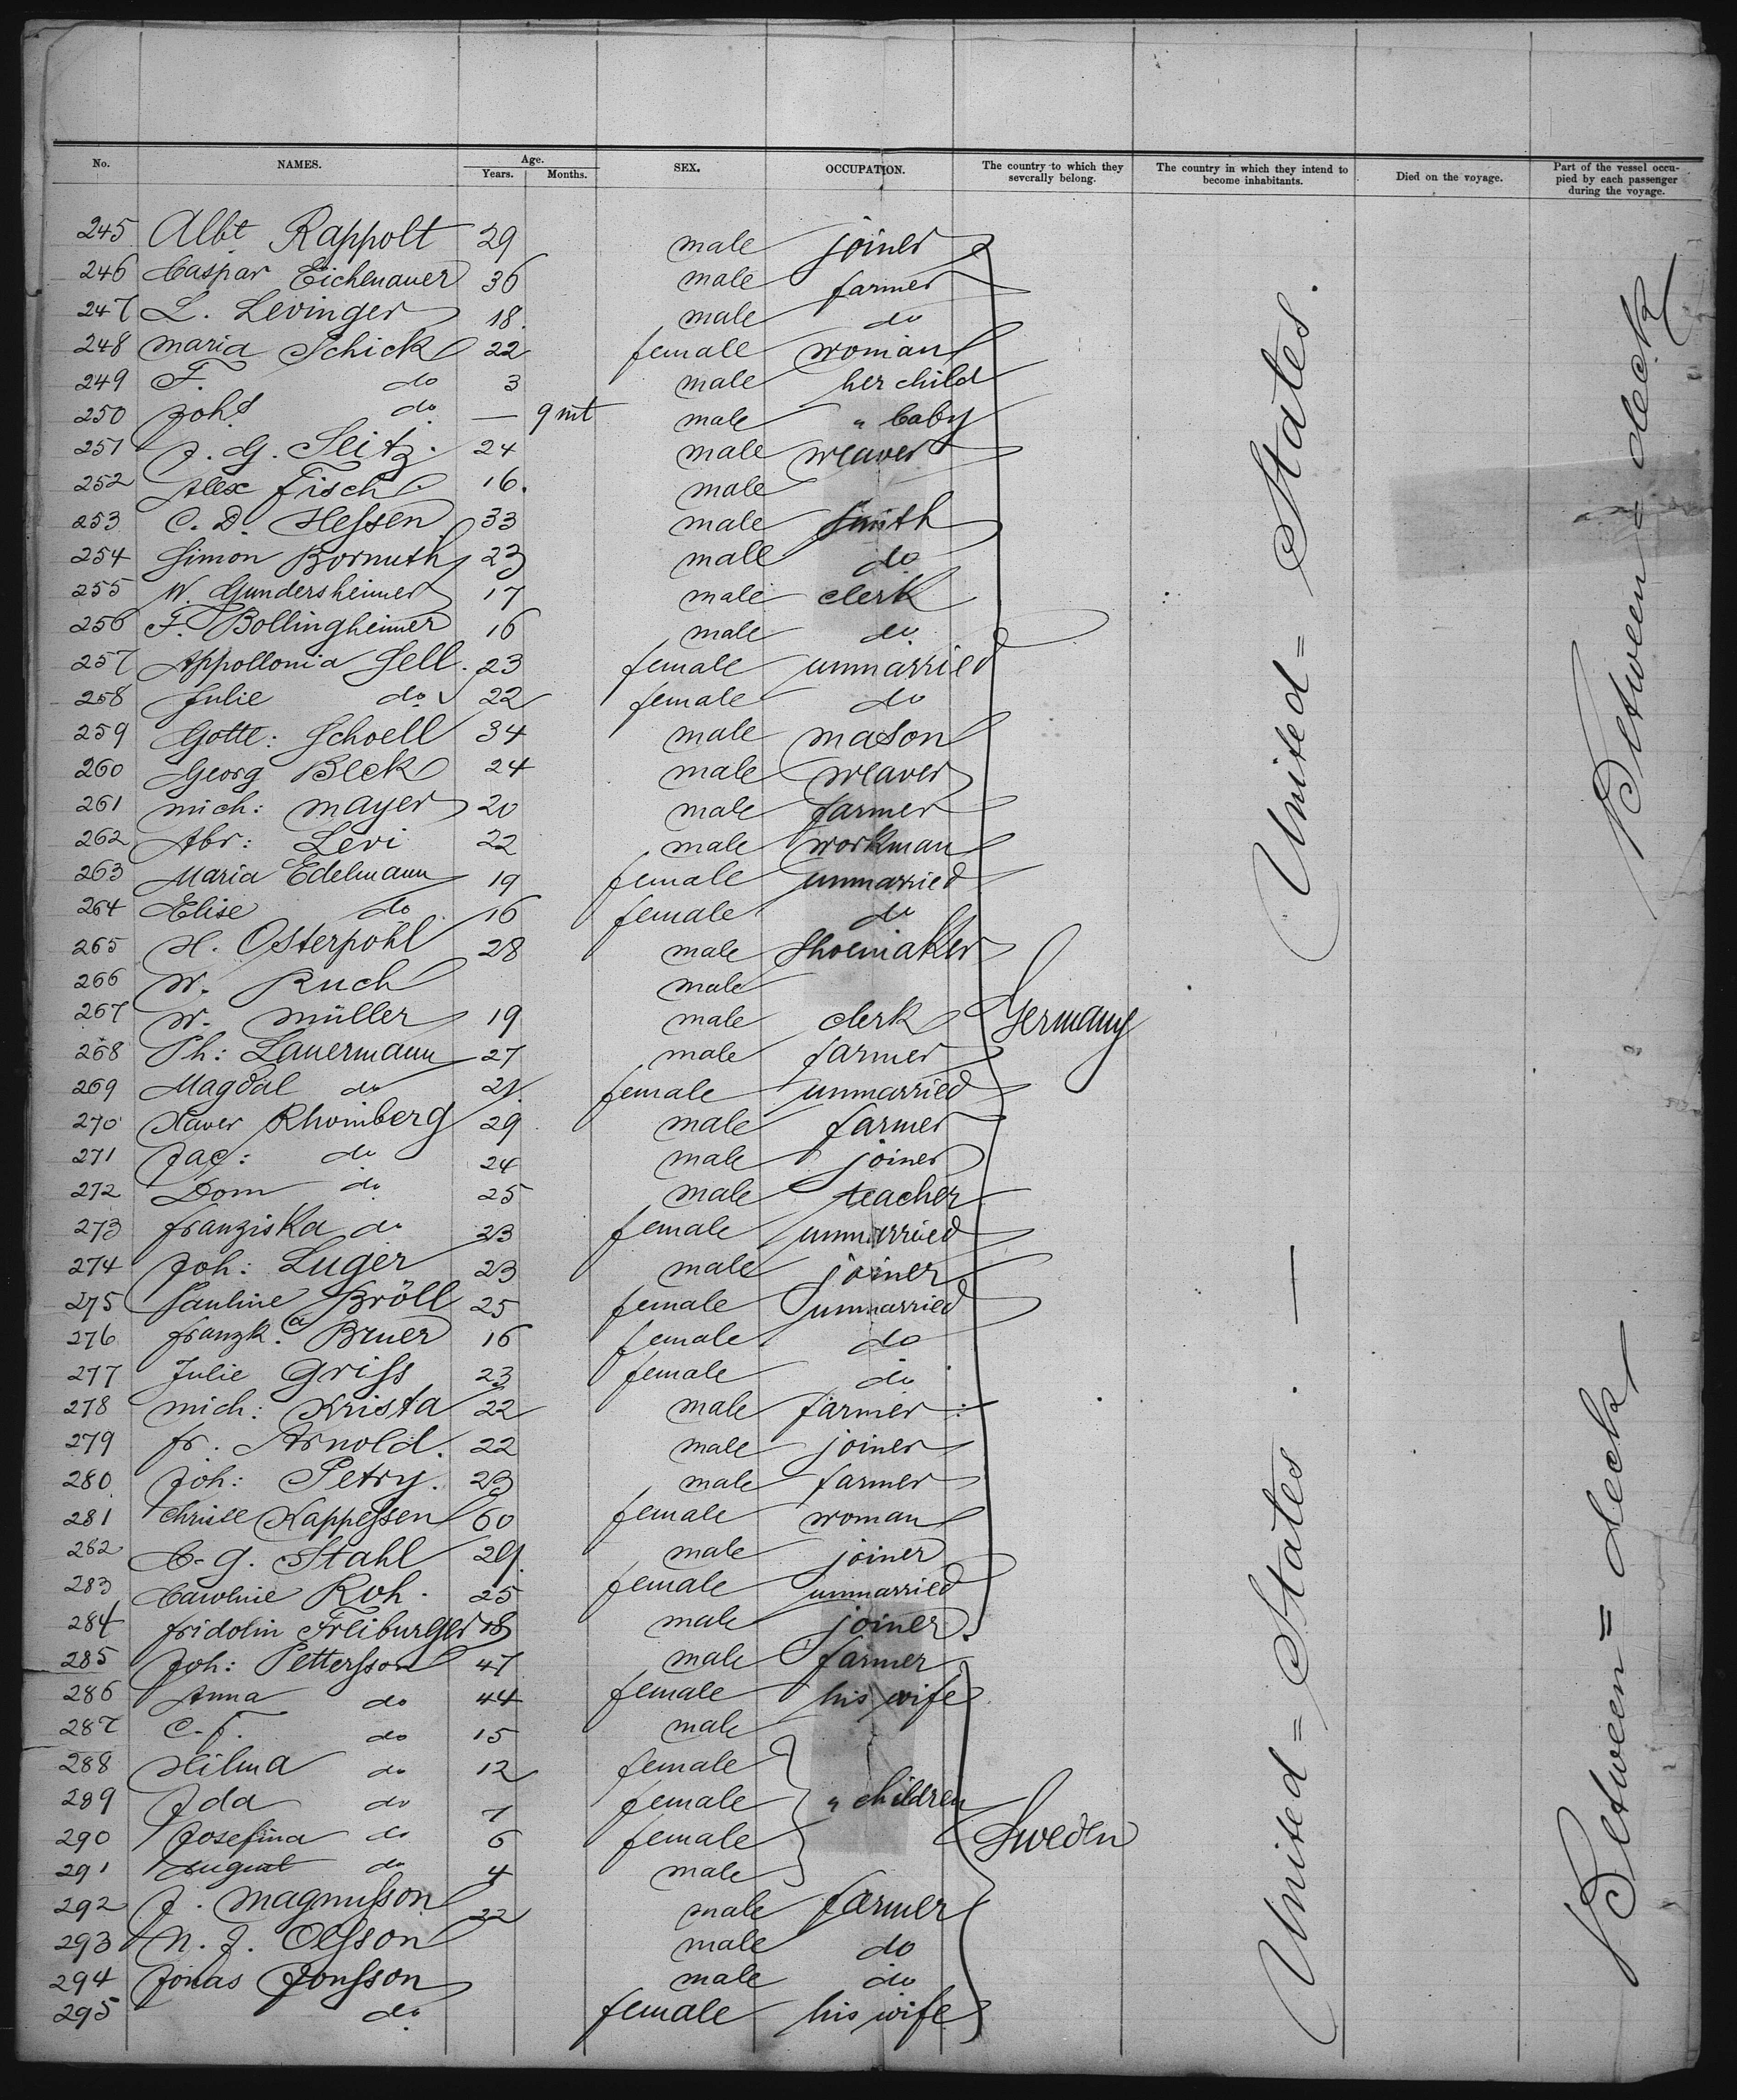 No. NAMES. Age. Years. Months. SEX. OCCUPATION. The country to which they severally belong. The country in which they intend to become inhabitants. Died on the voyage. Part of the vessel occupied by each passenger during the voyage.
245 Albt Rappolt 29 male joiner
246 Caspar Eichenauer 36 male farmer
247 L. Levinger 18. male do
248 Maria Schick 22 female woman
249 F. do 3 male her child
250 Johs do — 9 mt male " baby
251 J. G. Seitz. 24 male weaver
252 Alex Fisch 16. male
253 C. D. Hessen 33 male smith
254 Simon Bormuth 23 male do
255 W. Gundersheimer 17 male clerk
256 F. Bollingheimer 16 male do
257 Appollonia Sell. 23 female unmarried
258 Julie do 22 female do
259 Gotte: Schoell 34 male mason
260 Georg Beck 24 male weaver
261 Mich: Mayer 20 male farmer
262 Abr: Levi 22 male workman
263 Maria Edelmann 19 female unmarried
264 Elise do 16 female do
265 H. Osterpohl 28 male shoemaker
266 W. Ruch male
267 W. Müller 19 male clerk Germany
268 Ph: Lauermann 27 male farmer
269 Magdal do 21. female unmarried
270 Xaver Rhomberg 29 male farmer
271 Jac: do 24 male joiner
272 Dom do 25 male teacher
273 Franziska do 23 female unmarried
274 Joh: Luger 23 male joiner
275 Pauline Bröll 25 female unmarried
276 Franzk.a Bruer 16 female do
277 Julie Griss 23 female do
278 Mich: Krista 22 male farmer
279 Fr. Arnold. 22 male joiner
280 Joh: Petry. 23 male farmer
281 Kappessen 60 female woman
282 C. G. Stahl 29. male joiner
283 Caroline Roh. 25 female unmarried
284 Fridolin Freiburger 18 male joiner
285 Joh: Pettersson 47 male farmer
286 Anna do 44 female his wife
287 C. F. do 15 male
288 Hilma do 12 female
289 Ida do 7 female " children
290 Josefina do 6 female Sweden
291 August do 4 male
292 J. Magnusson 22 male farmer
293 N. J. Olsson male do
294 Jonas Jonsson male do
295 do female his wife
United = States.
United = States. —
Between = deck
Between = deck